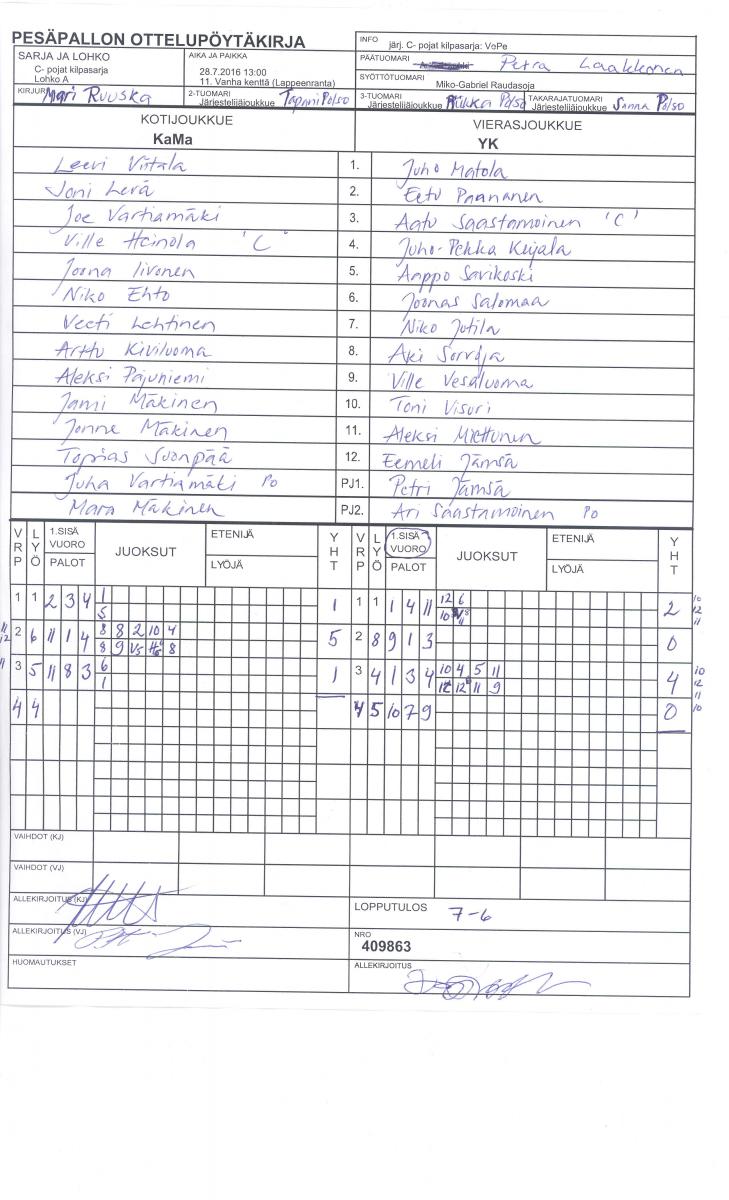 PESÄPALLON OTTELUPÖYTÄKIRJA
INFO
järj. C- pojat kilpasarja: VoPe
SARJA JA LOHKO
C- pojat kilpasarja
Lohko A
AIKA JA PAIKKA
28.7.2016 13:00
11. Vanha kenttä (Lappeenranta)
PÄÄTUOMARI
Petra Laakkonen
SYÖTTÖTUOMARI
Miko-Gabriel Raudasoja
KIRJURI Mari Ruuska
2-TUOMARI
Järjestelijäjoukkue Tapani Polso
3-TUOMARI
Järjestelijäjoukkue Riikka Polso
TAKARAJATUOMARI
Järjestelijäjoukkue Sanna Polso
KOTIJOUKKUE
KaMa
VIERASJOUKKUE
YK
Leevi Viitala 1. Juho Matola
Joni Lerä 2. Eetu Paananen
Joe Vartiamäki 3. Aatu Saastamoinen 'C'
Ville Heinola 'C' 4. Juho-Pekka Kujala
Joona Iivonen 5. Anppo Savikoski
Niko Ehto 6. Joonas Salomaa
Veeti Lehtinen 7. Niko Jutila
Arttu Kiviluoma 8. Aki Sorroja
Aleksi Pajuniemi 9. Ville Vesaluoma
Jami Mäkinen 10. Toni Visuri
Jonne Mäkinen 11. Aleksi Miettunen
Topias Suonpää 12. Eemeli Jämsä
Juha Vartiamäki Po PJ1. Petri Jämsä
Mara Mäkinen PJ2. Ari Saastamoinen Po
VRP LYÖ 1.SISÄ VUORO PALOT JUOKSUT ETENIJÄ LYÖJÄ YHT
VRP LYÖ 1.SISÄ VUORO PALOT JUOKSUT ETENIJÄ LYÖJÄ YHT
1 1 2 3 4 1 1 1 1 1 4 11 12 6 2
5 10
2 6 11 1 4 8 8 2 10 4 5 2 8 9 1 3 0
8 9 V5 8
3 5 11 8 3 6 1 3 4 1 3 4 10 4 5 11 4
1 12 12 11 9
4 4 4 5 10 7 9 0
VAIHDOT (KJ)
VAIHDOT (VJ)
ALLEKIRJOITUS (KJ)
LOPPUTULOS 7-6
ALLEKIRJOITUS (VJ)
NRO
409863
HUOMAUTUKSET
ALLEKIRJOITUS